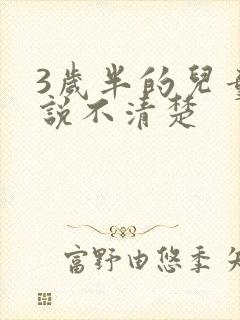 3歲半的兒
說不清楚
富野由悠季